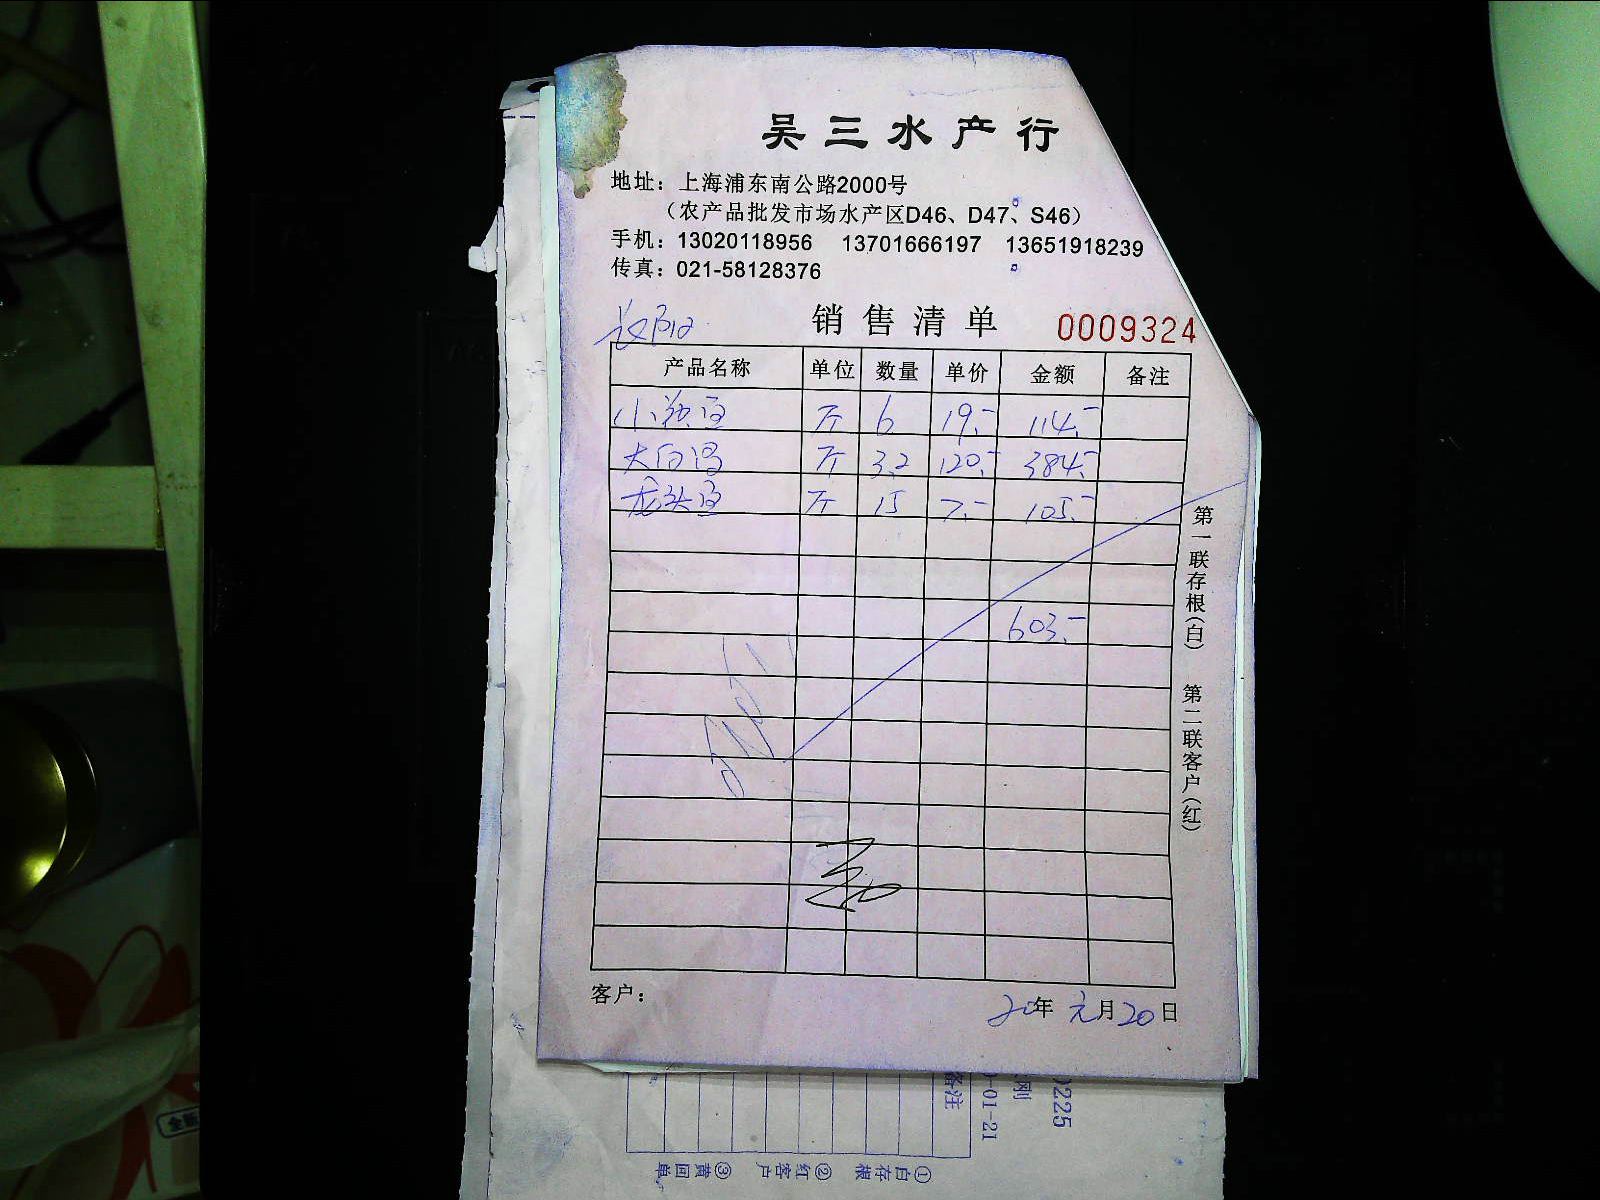 吴三水产行
地址：上海浦东南公路2000号
（农产品批发市场水产区D46、D47、S46）
手机：13020118956 13701666197 13651918239
传真：021-58128376
销售清单 0009324
产品名称 单位 数量 单价 金额 备注
小 斤 6 19.- 114.-
大白 斤 3.2 120.- 384.-
龙头鱼 斤 15 7.- 105.-
603.-
第一联存根(白) 第二联客户(红)
客户：
20年元月20日
备注
-01-21
刚
0225
①白存根 ②红客户 ③黄回单